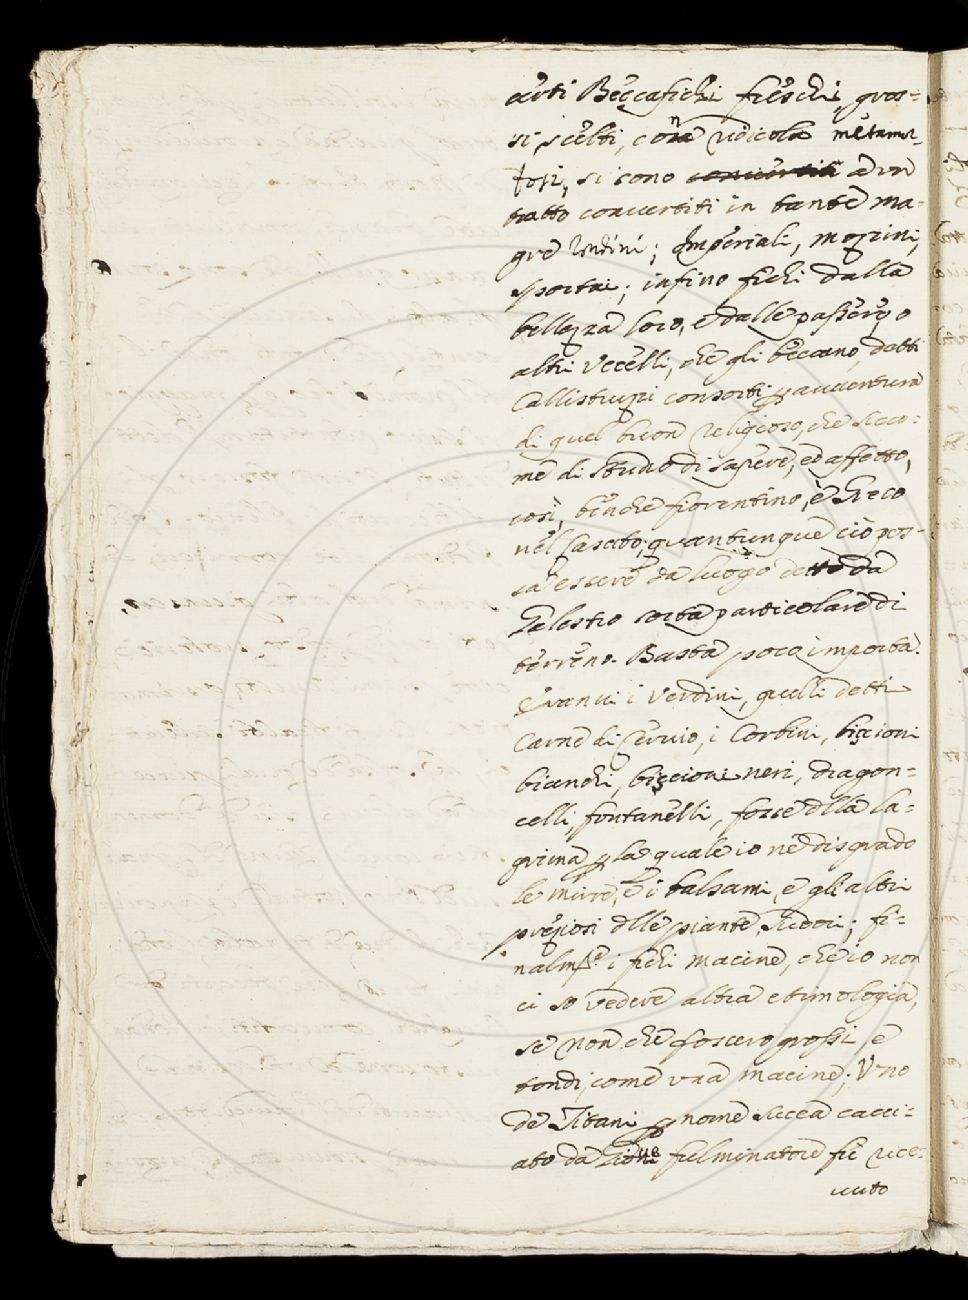 arti Beccafichi freschi, gros=
si, scelti, con ridicola metamor-
fosi, si sono convertiti ad un
tratto convertiti in tante ma=
gre Rondini; Imperiali, mozzini,
sportai; infino fichi dalla
bellezza loro, e dalle passere, o
altri Uccelli, che gli beccano, detti
Callistruzzi consorti p avventura
di quel buon religioso, che sicco:
me di studio di sapere, ed affetto,
così, benche fiorentino, è Greco
nel Casato, quantunque ciò pos-
sa essere da luogo detto da
Galestro sorta particolare di
terreno. Basta poco importa.
Eranvi i Verdini, quelli detti
Carne di Cervio, i Corbini, bizzioni
bianchi, bizzioni neri, dragon=
celli, fontanelli, forse dlla la=
grima p la quale io ne disgrado
le mirre, e i balsami, e gli altri
preziosi dlle piante sudori; fi=
nalmte i fichi macine, che io non
ci so vedere altra etimologia,
se non che fossero grossi, e
tondi, come una macine; Uno
de Titani p nome Sicea cacci-
ato da Giove fulminatore fù rice-
vuto